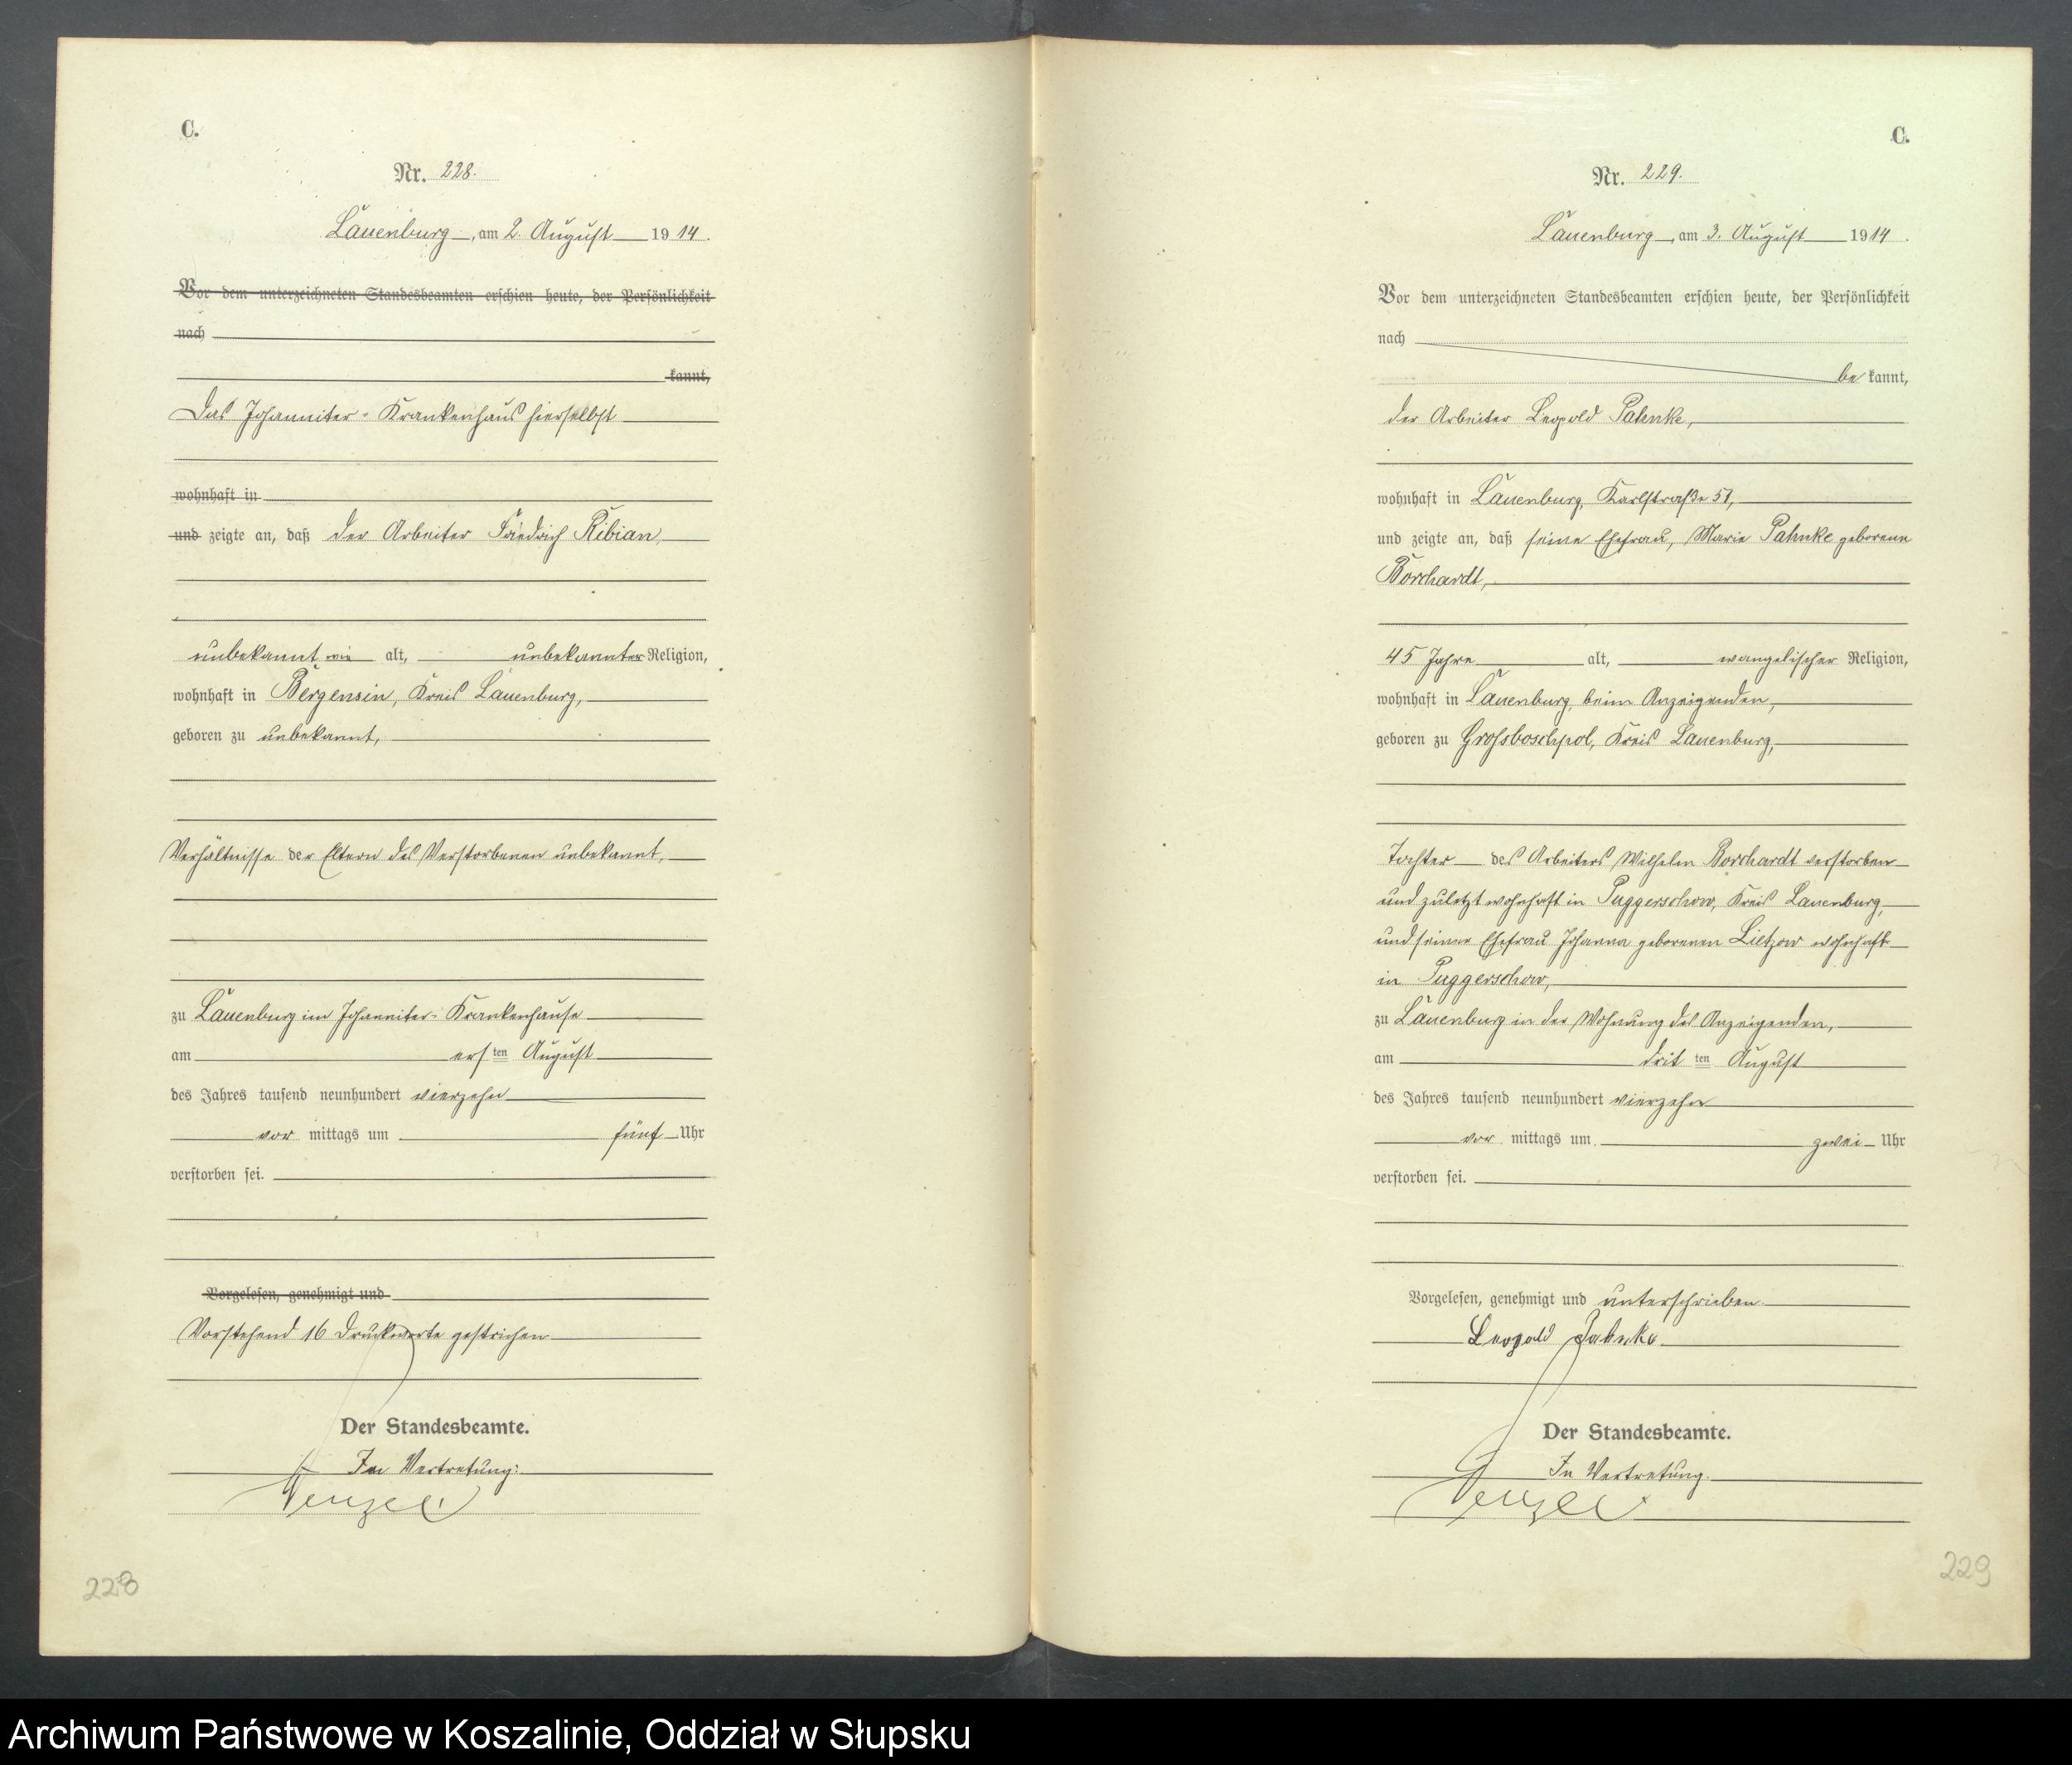 C.
Nr. 228.
Lauenburg, am 2. August 1914.
Vor dem unterzeichneten Standesbeamten erschien heute, der Persönlichkeit
nach
kannt,
Das Johanniter-Krankenhaus hierselbst
wohnhaft in
und zeigte an, daß der Arbeiter Friedrich Ribian,
unbekannt wie alt, unbekannter Religion,
wohnhaft in Bergensin, Kreis Lauenburg,
geboren zu unbekannt,
Verhältnisse der Eltern des Verstorbenen unbekannt,
zu Lauenburg im Johanniter-Krankenhause
am ersten August
des Jahres tausend neunhundert vierzehn
vor mittags um fünf Uhr
verstorben sei.
Vorgelesen, genehmigt und
Vorstehend 16 Druckworte gestrichen
Der Standesbeamte.
In Vertretung:
228
C.
Nr. 229.
Lauenburg, am 3. August 1914.
Vor dem unterzeichneten Standesbeamten erschien heute, der Persönlichkeit
nach
be kannt,
der Arbeiter Leopold Pahnke,
wohnhaft in Lauenburg, Karlstraße 51,
und zeigte an, daß seine Ehefrau, Marie Pahnke geborene
Borchardt,
45 Jahre alt, evangelischer Religion,
wohnhaft in Lauenburg, beim Anzeigenden,
geboren zu Grossboschpol, Kreis Lauenburg,
Tochter des Arbeiters Wilhelm Borchardt verstorben
und zuletzt wohnhaft in Puggerschow, Kreis Lauenburg,
und seiner Ehefrau Johanna geborenen Lietzow wohnhaft
in Puggerschow,
zu Lauenburg in der Wohnung des Anzeigenden,
am dritten August
des Jahres tausend neunhundert vierzehn
vor mittags um zwei Uhr
verstorben sei.
Vorgelesen, genehmigt und unterschrieben.
Leopold Pahnke
Der Standesbeamte.
In Vertretung.
229
Archiwum Państwowe w Koszalinie, Oddział w Słupsku